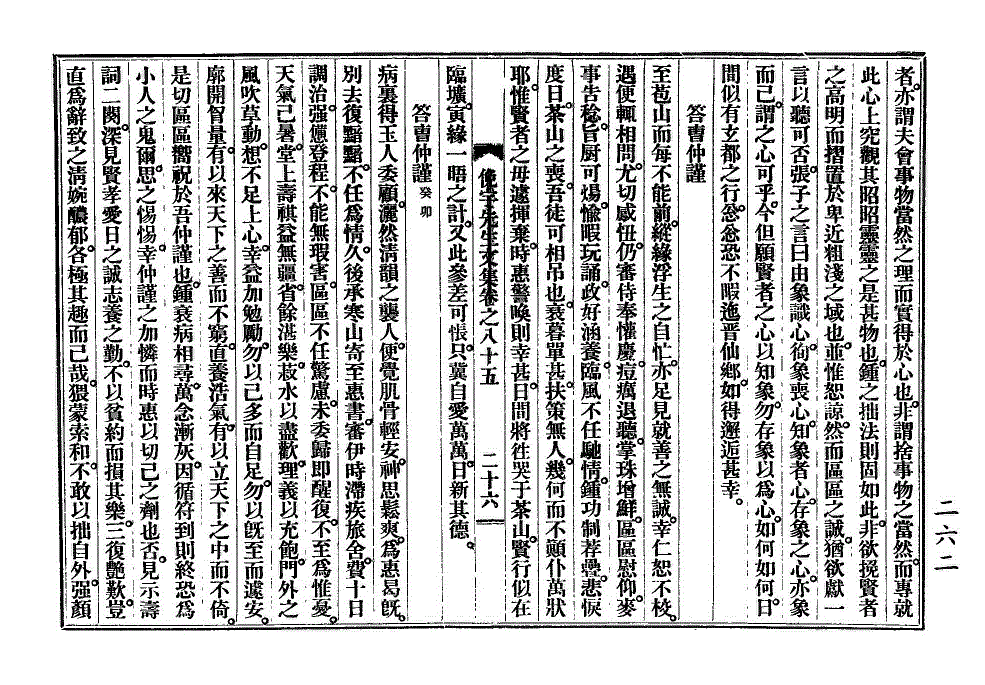 者。亦謂夫會事物當然之理而實得於心也。非謂捨事物之當然。而專就
此心上究觀其昭昭靈靈之是甚物也。鍾之拙法則固如此。非欲挽賢者
之高明而摺置於卑近粗淺之域也。並惟恕諒。然而區區之誠。猶欲獻一
言以聽可否。張子之言曰由象識心。徇象喪心。知象者心。存象之心。亦象
而已。謂之心可乎。今但願賢者之心以知象。勿存象以爲心。如何如何。日
間似有玄都之行。忿忿恐不暇迤晋仙鄕。如得邂逅甚幸。
答曺仲謹
至苞山而每不能前。縱緣浮生之自忙。亦足見就善之無誠。幸仁恕不校。
遇便輒相問。尤切感忸。仍審侍奉懽慶。痘癘退聽。掌珠增鮮。區區慰仰。麥
事告稔。旨厨可煬。愉暇玩誦。政好涵養。臨風不任馳情。鍾功制荐疊。悲悷
度日。茶山之喪。吾徒可相吊也。衰暮單甚。扶策無人。幾何而不顚仆萬狀
耶。惟賢者之毋遽揮棄。時惠警喚則幸甚。日間將徃哭于茶山。賢行似在
臨壙。寅緣一晤之計。又此參差可悵。只冀自愛萬萬。日新其德。
俛宇先生文集卷之八十五 二十六
答曺仲謹 癸卯
病裏得玉人委顧。灑然淸韻之襲人。便覺肌骨輕安。神思鬆爽。爲惠曷旣。
別去復黯黯。不任爲情。久後承寒山寄至惠書。審伊時滯疾旅舍。費十日
調治。强嬴登程。不能無瑕害。區區不任驚慮。未委歸卽醒復。不至爲惟憂。
天氣已暑。堂上壽祺益無疆。省餘湛樂。菽水以盡歡。理義以充飽。門外之
風吹草動。想不足上心。幸益加勉勵。勿以已多而自足。勿以旣至而遽安。
廓開智量。有以來天下之善而不窮。直養浩氣。有以立天下之中而不倚。
是切區區嚮祝於吾仲謹也。鍾衰病相尋。萬念漸灰。因循符到則終恐爲
小人之鬼爾。思之惕惕。幸仲謹之加憐而時惠以切己之劑也否。見示壽
詞二闋。深見賢孝愛日之誠志養之勤。不以貧約而損其樂。三復艶歎。豈
直爲辭致之淸婉醲郁。各極其趣而已哉。猥蒙索和。不敢以拙自外。强顏
二六二